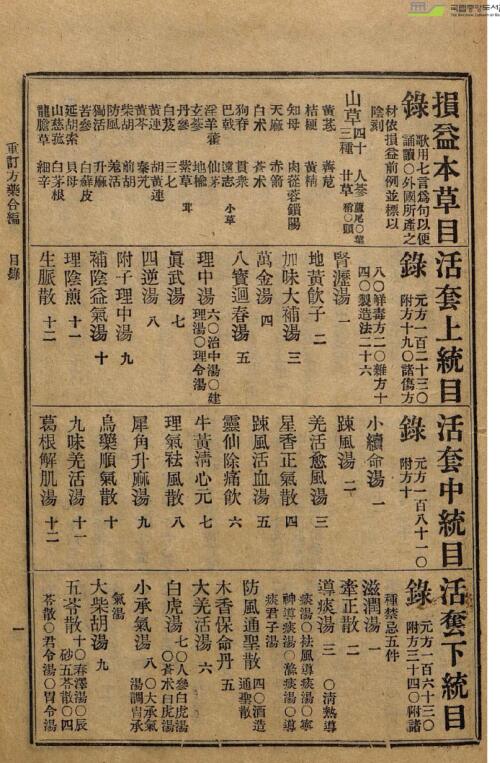 國立中央도서관
重訂方藥合編 目錄
一
損益本草目錄
歌用七言爲句以便
誦讀○外國所產之
材依損益前例並標以
陰刻
山草四十三種
人蔘
蘆尾○葉
甘草
梢○頭
黃芪 薺苨
桔梗 黃精
知母 肉蓯蓉鎖陽
天麻 赤箭
白朮 蒼朮
狗脊 貫衆
巴戟 遠志 小草
淫羊藿 仙茅
玄蔘 地楡
丹蔘 紫草 茸
白芨 三七
黃連 胡黃連
黃芩 秦艽
柴胡 前胡
防風 羌活
獨活 升麻
苦蔘 白蘚皮
延胡索 貝母
山慈菰 白茅根
龍膽草 細辛
活套上統目錄
元方一百二十三○
附方十九○諸傷方
八○解毒方二○雜方十
四○製造法二十六
腎瀝湯 一
地黃飮子 二
加味大補湯 三
萬金湯 四
八寶迴春湯 五
理中湯
六○治中湯○建
理湯○理令湯
眞武湯 七
四逆湯 八
附子理中湯 九
補陰益氣湯 十
理陰煎 十一
生脈散 十二
活套中統目錄
元方一百八十一○
附方十
小續命湯 一
踈風湯 二
羌活愈風湯 三
星香正氣散 四
踈風活血湯 五
靈仙除痛飮 六
牛黃淸心元 七
理氣祛風散 八
犀角升麻湯 九
烏藥順氣散 十
九味羌活湯 十一
葛根解肌湯 十二
活套下統目錄
元方一百六十三○
附方三十四○附諸
種禁忌五件
滋潤湯 一
牽正散 二
導痰湯 三 ○淸熱導
痰湯○祛風導痰湯○寧
神導痰湯○滌痰湯○導
痰君子湯
防風通聖散
四○酒造
通聖散
木香保命丹 五
大羌活湯 六
白虎湯
七○人參白虎湯
○蒼朮白虎湯
小承氣湯
八○大承氣
湯調胃承
氣湯
大柴胡湯 九
五苓散
十○春澤湯○辰
砂五苓散○四
苓散○君令湯○胃令湯